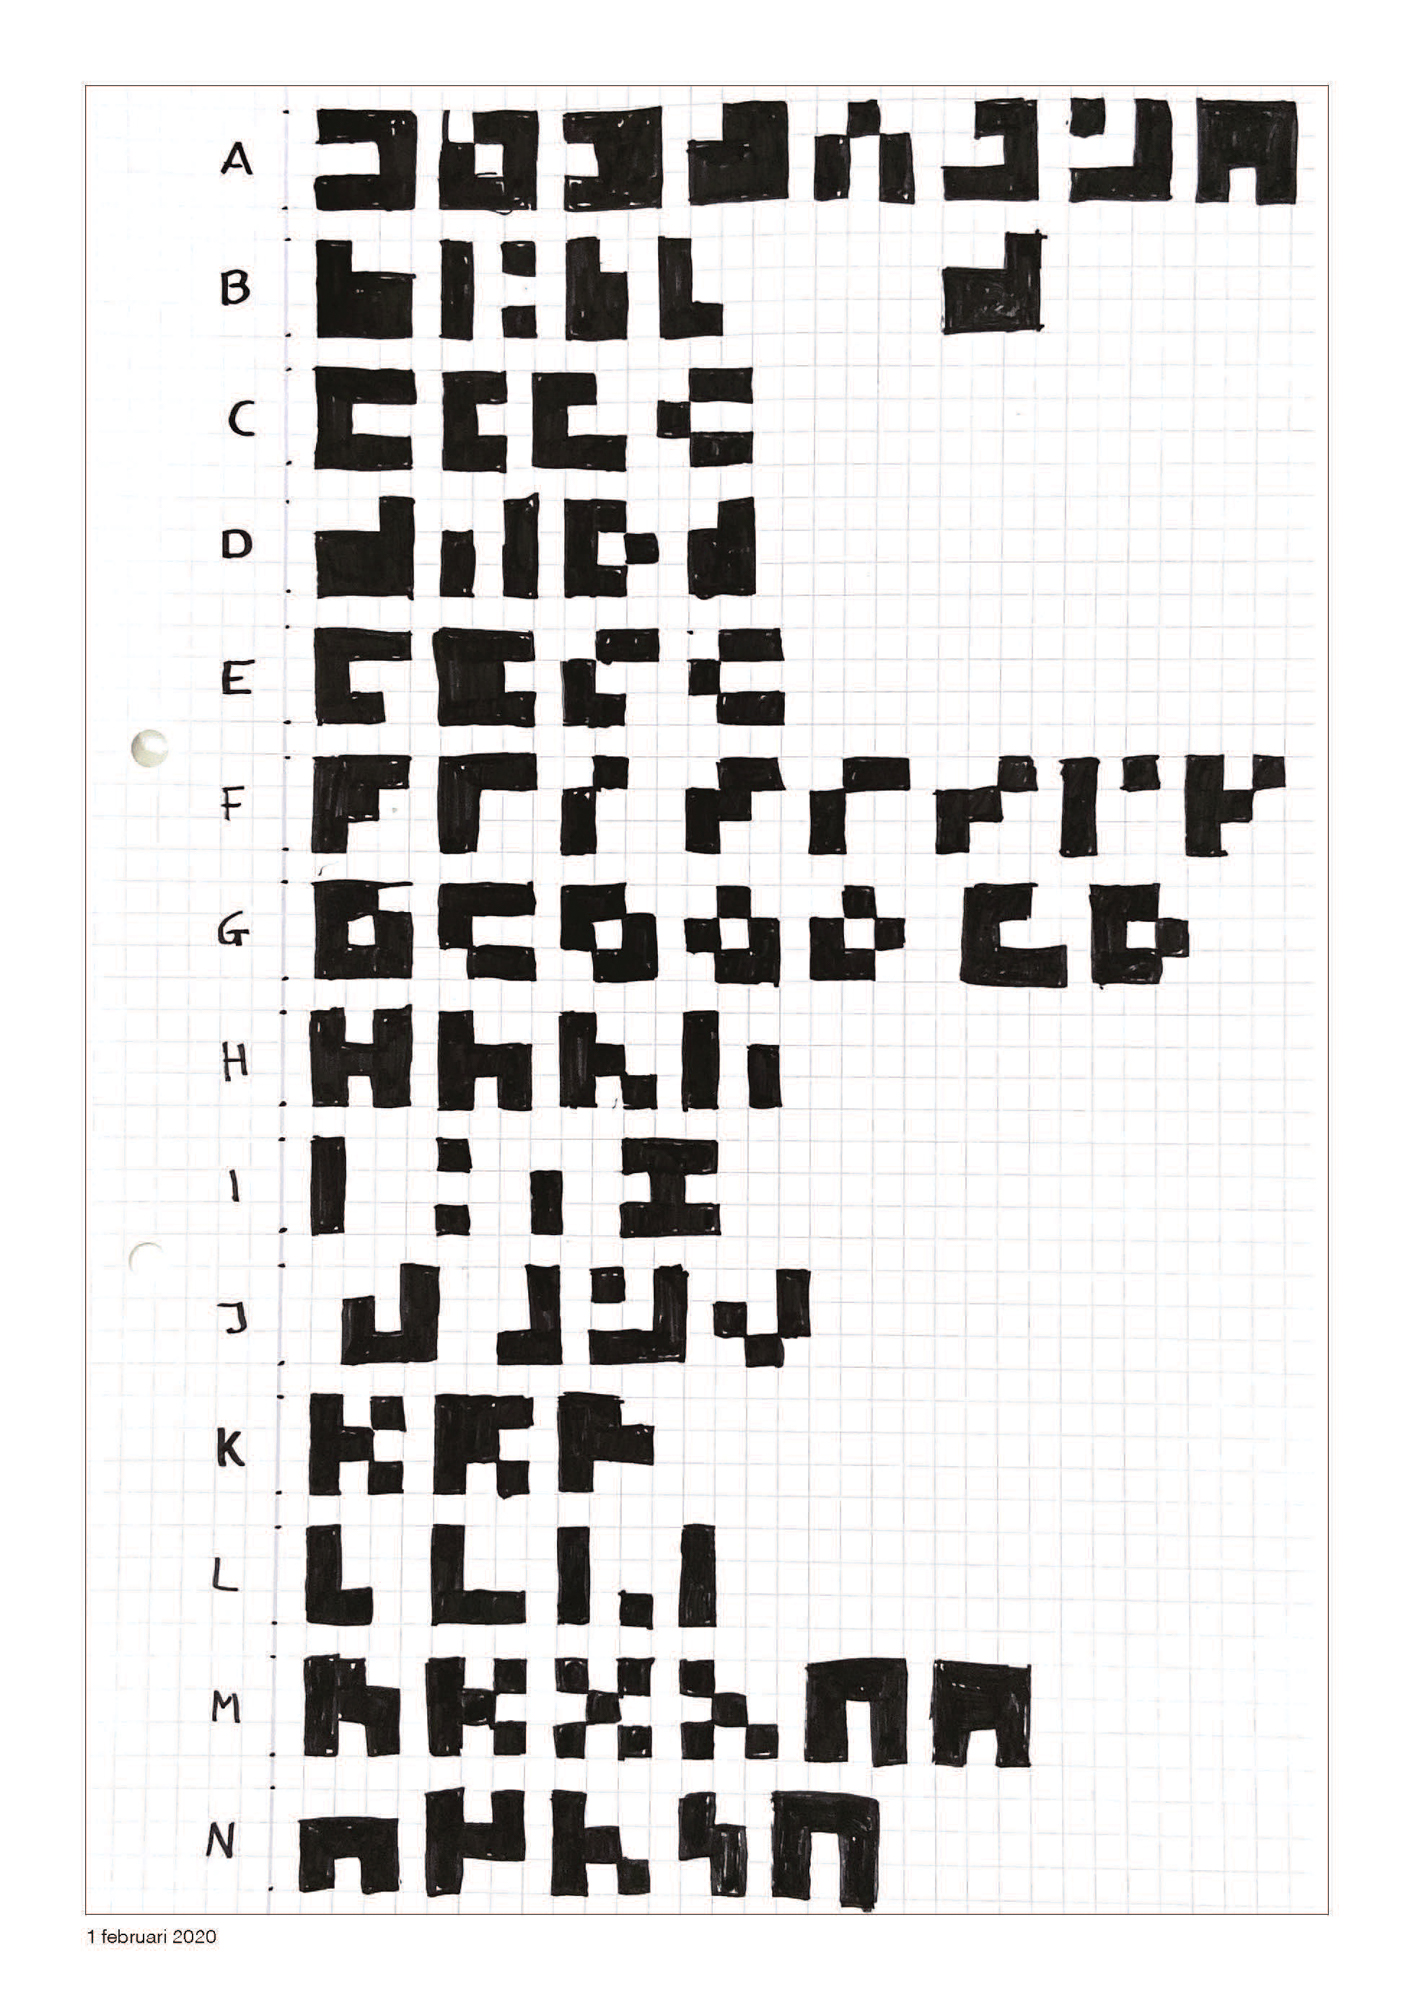 A
B
C
D
E
F
G
H
I
J
K
L
M
N
1 februari 2020